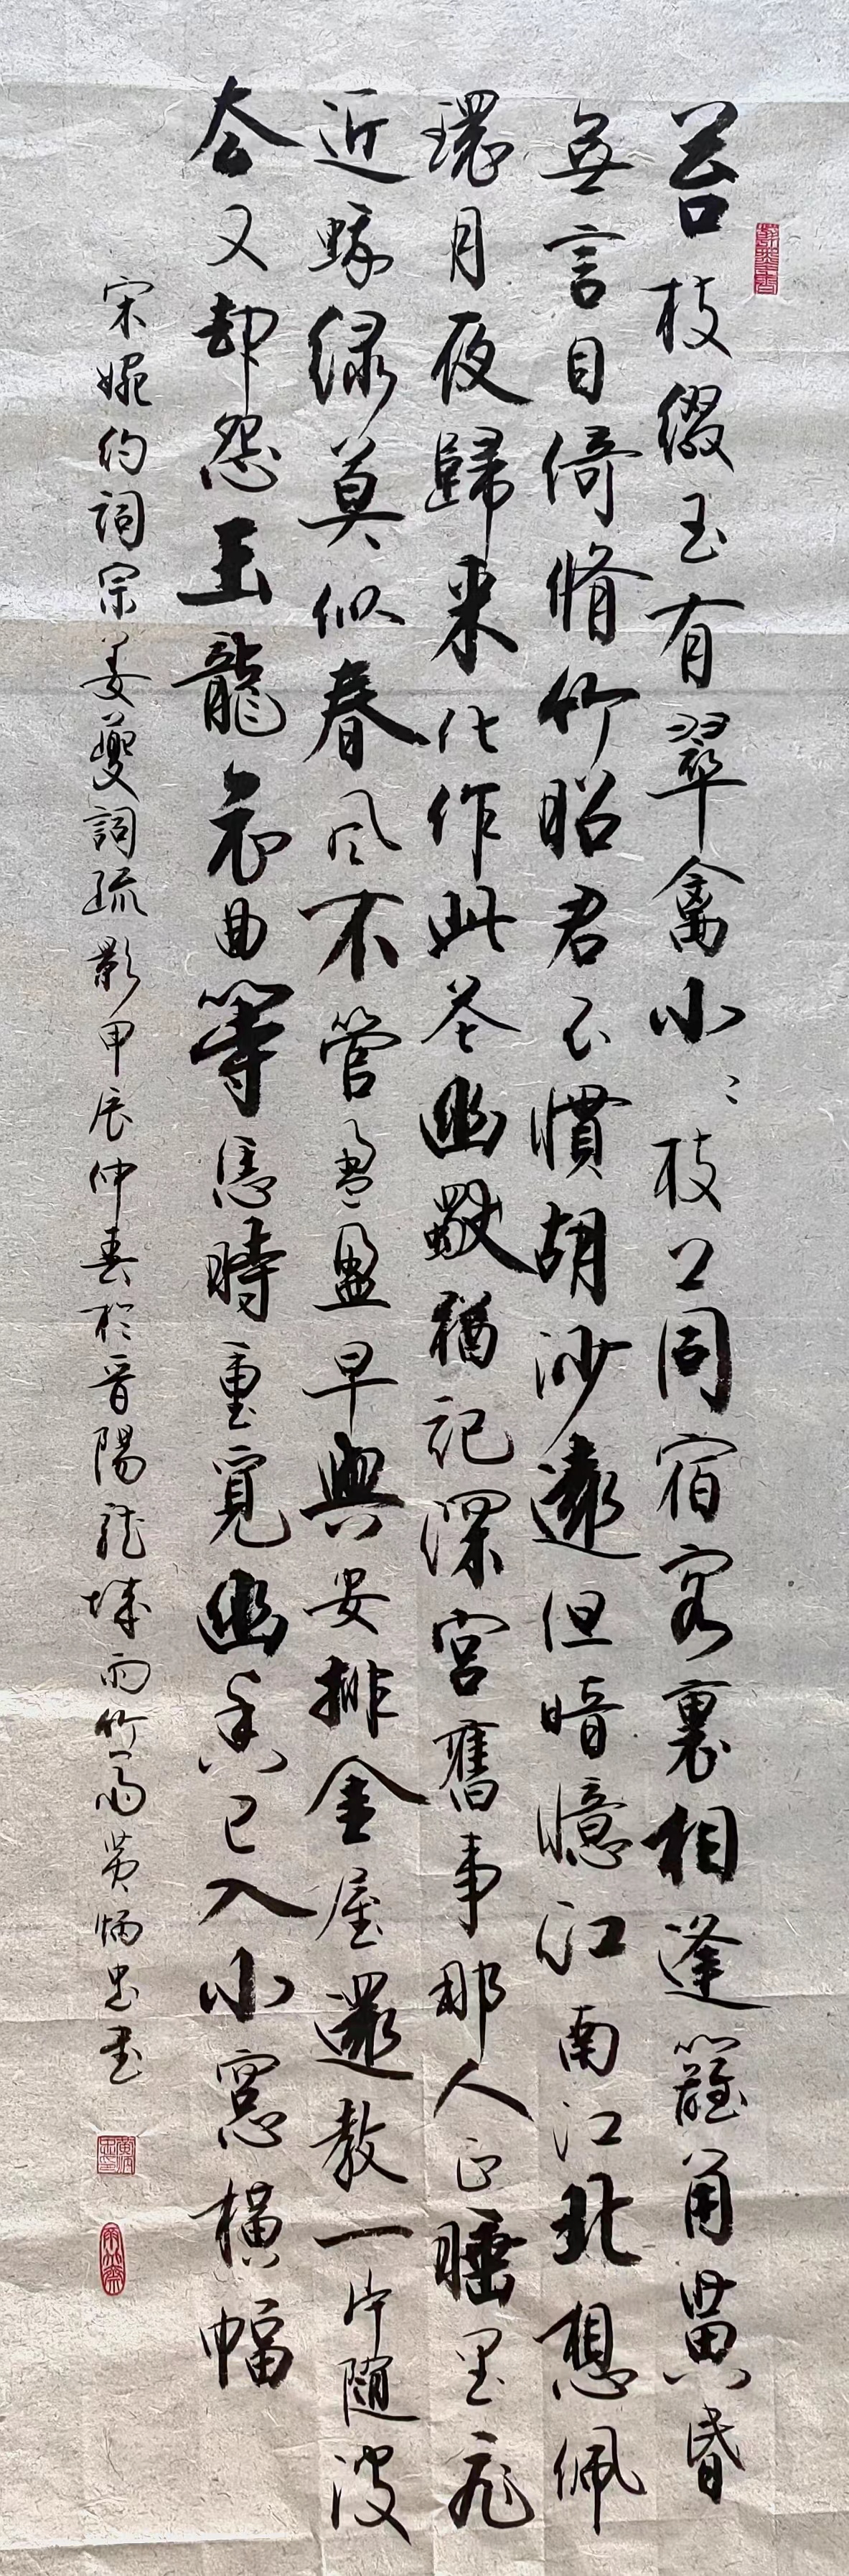 苔枝缀玉有翠禽小〻枝上同宿客裏相逢籬角黄昏
無言自倚脩竹昭君不慣胡沙遠但暗憶江南江北想佩
環月夜歸来化作此花幽獨猶記深宫舊事那人正睡里飛
近蛾绿莫似春风不管盈盈早與安排金屋還教一片随波
去又却怨玉龍哀曲等恁時重覓幽香已入小窓横幅
宋婉约詞宗姜夔詞疏影甲辰仲春於晋陽龍城雨竹齋黄炳忠書
雨竹齋